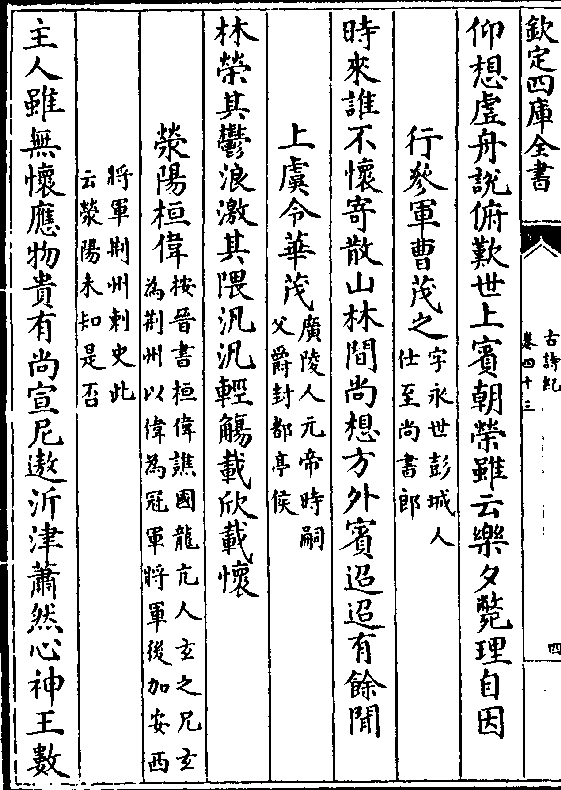 欽定四庫全書
古詩紀
卷四十三
四
仰想虛舟說俯歎世上賓朝榮雖云樂夕斃理自因
行參軍曹茂之字永世彭城人
仕至尚書郎
時來誰不懷寄散山林間尚想方外賓迢迢有餘閒
上虞令華茂廣陵人元帝時嗣
父爵封都亭侯
林榮其鬱浪激其隈汎汎輕觴載欣載懷
滎陽桓偉按晉書桓偉譙國龍亢人玄之兄玄
為荆州以偉為冠軍將軍後加安西
將軍荆州刺史此
云滎陽未知是否
主人雖無懷應物貴有尚宣尼遨沂津蕭然心神王數